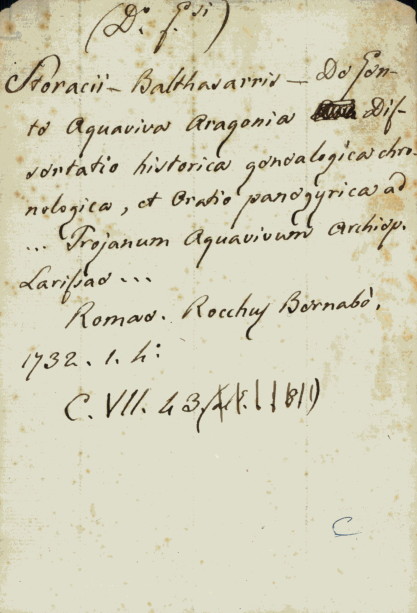 (D. f. Esi)
Storacii - Balthasarris - De Gen-
te Aquaviva Aragonia Dis-
sertatio historica genealogica chro-
nologica, et Oratio panegyrica ad
... Trojanum Aquavivum Archiep.
Larissae ...
Romae. Rocchus Bernabò.
1732. 1. 4:
C. VII. 43
C